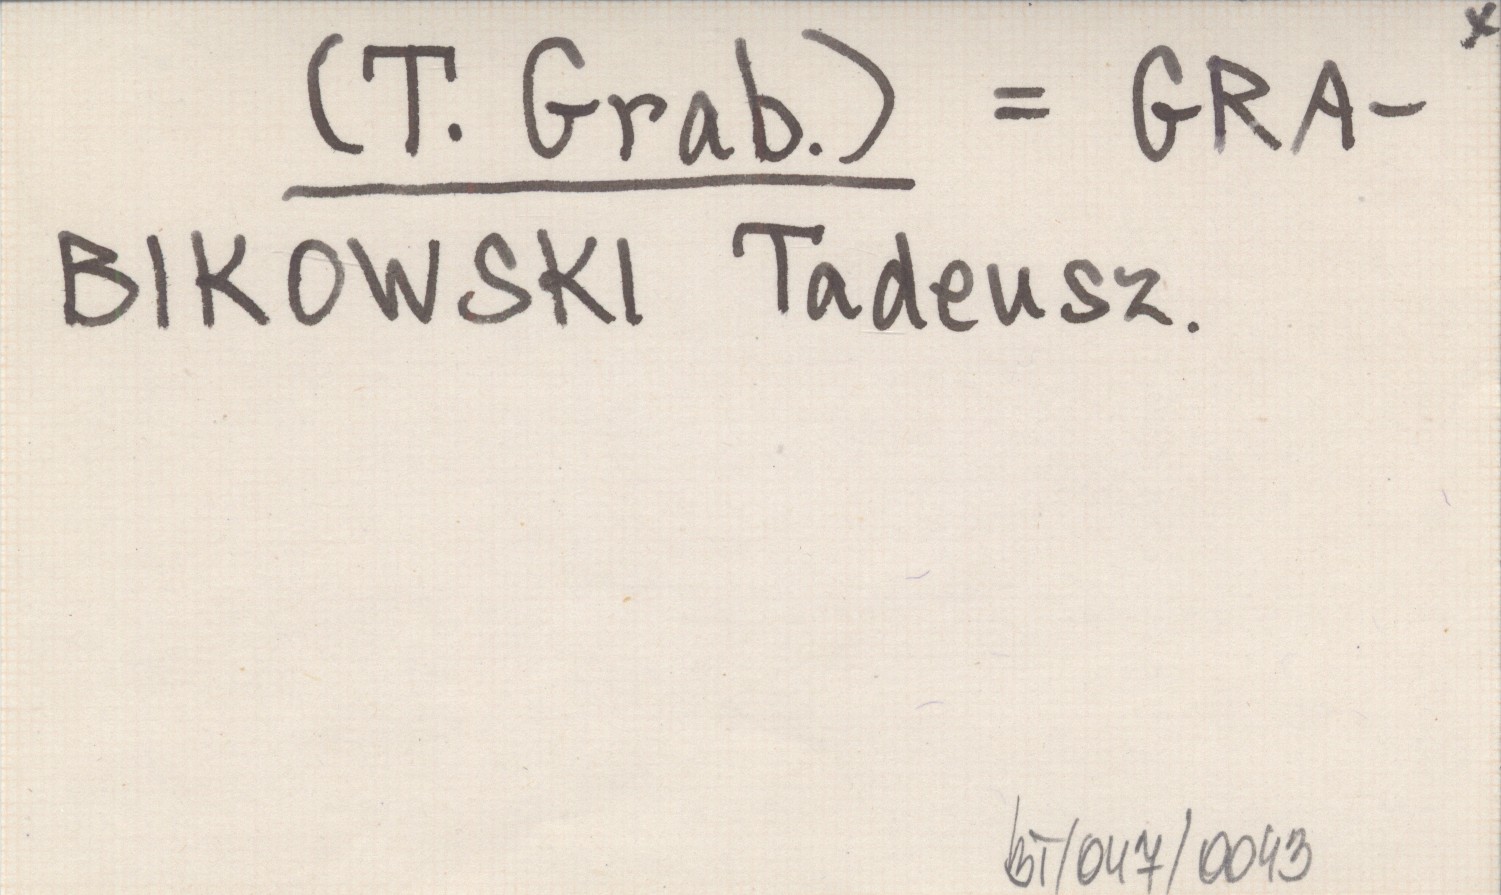 (T. Grab.) = GRA- x
BIKOWSKI Tadeusz.
BT/047/0043